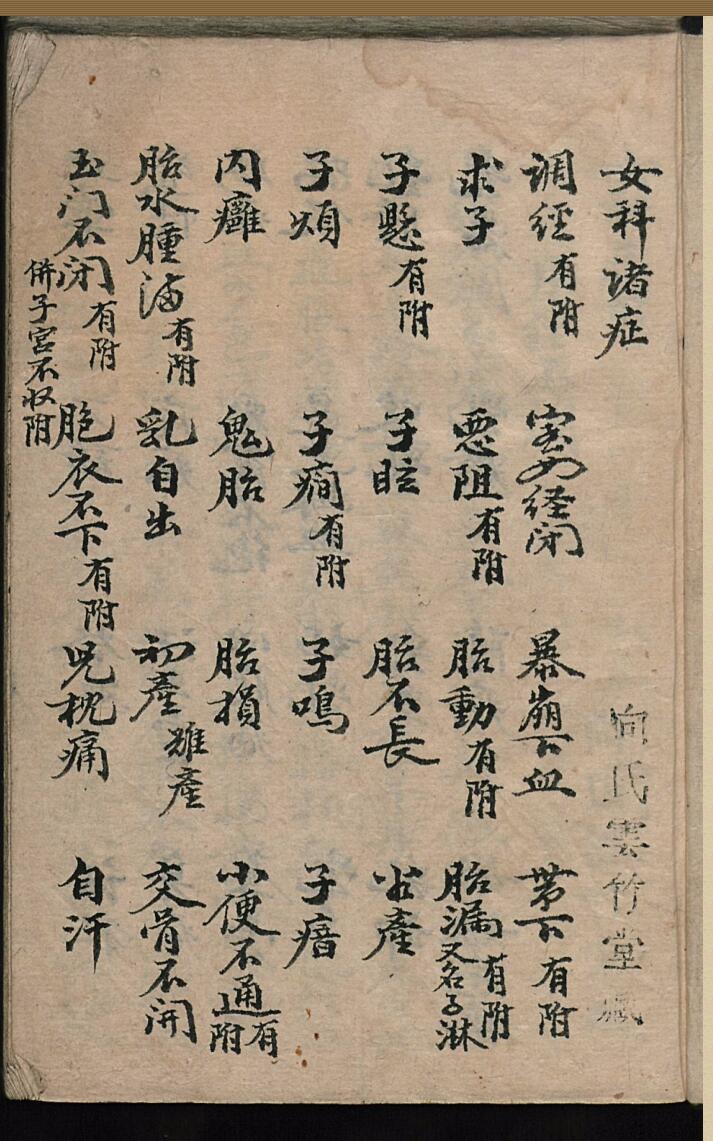 女科诸症
调經有附 室女经闭 暴崩下血 带下有附
求子 惡阻有附 胎動有附 胎漏有附又名子淋
子懸有附 子眩 胎不長 半產
子煩 子癇有附 子鳴 子瘖
内癰 鬼胎 胎損 小便不通有附
胎水腫滿有附 乳自出 初產难產 交骨不開
玉门不闭有附 胞衣不下有附 児枕痛 自汗
併子宮不収附
向氏雲竹堂藏